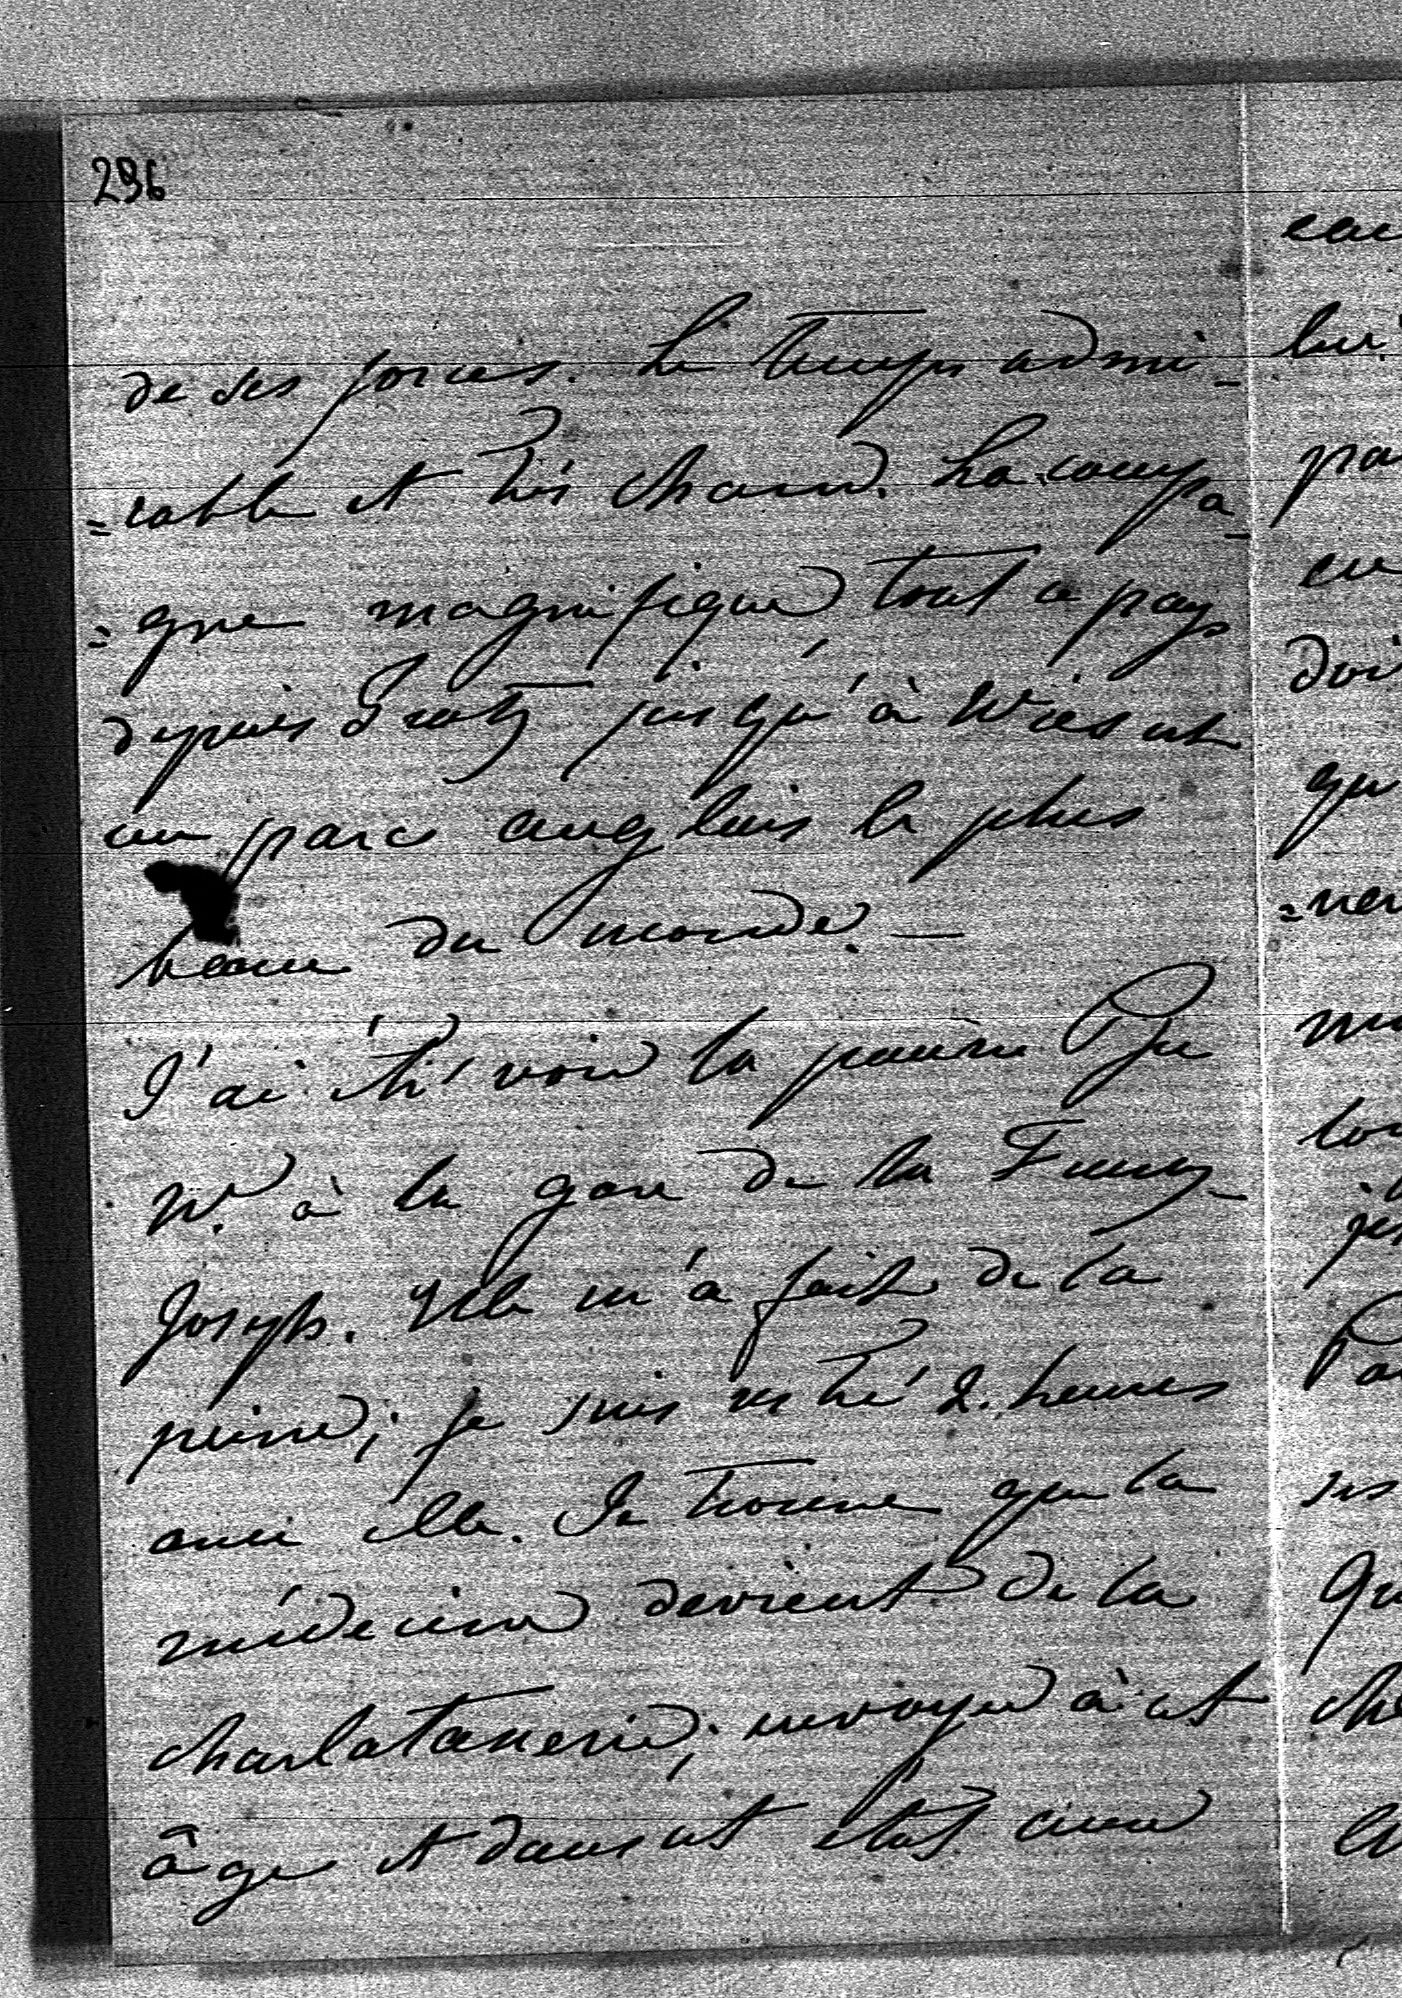 296
de ses forces. Le temps admi-
=rable et très chaud. La campa-
=gne magnifique tout ce pays
depuis Gratz jusqu'à W. est
un parc anglais le plus
beau du monde. —
J'ai été voir la pauvre Pse
W. à la gare de la Franz-
Joseph. Elle m'a fait de la
peine; je suis resté 2. heures
avec elle. Je trouve que la
médecine devient de la
charlatanerie; envoyer à cet
âge et dans cet état une